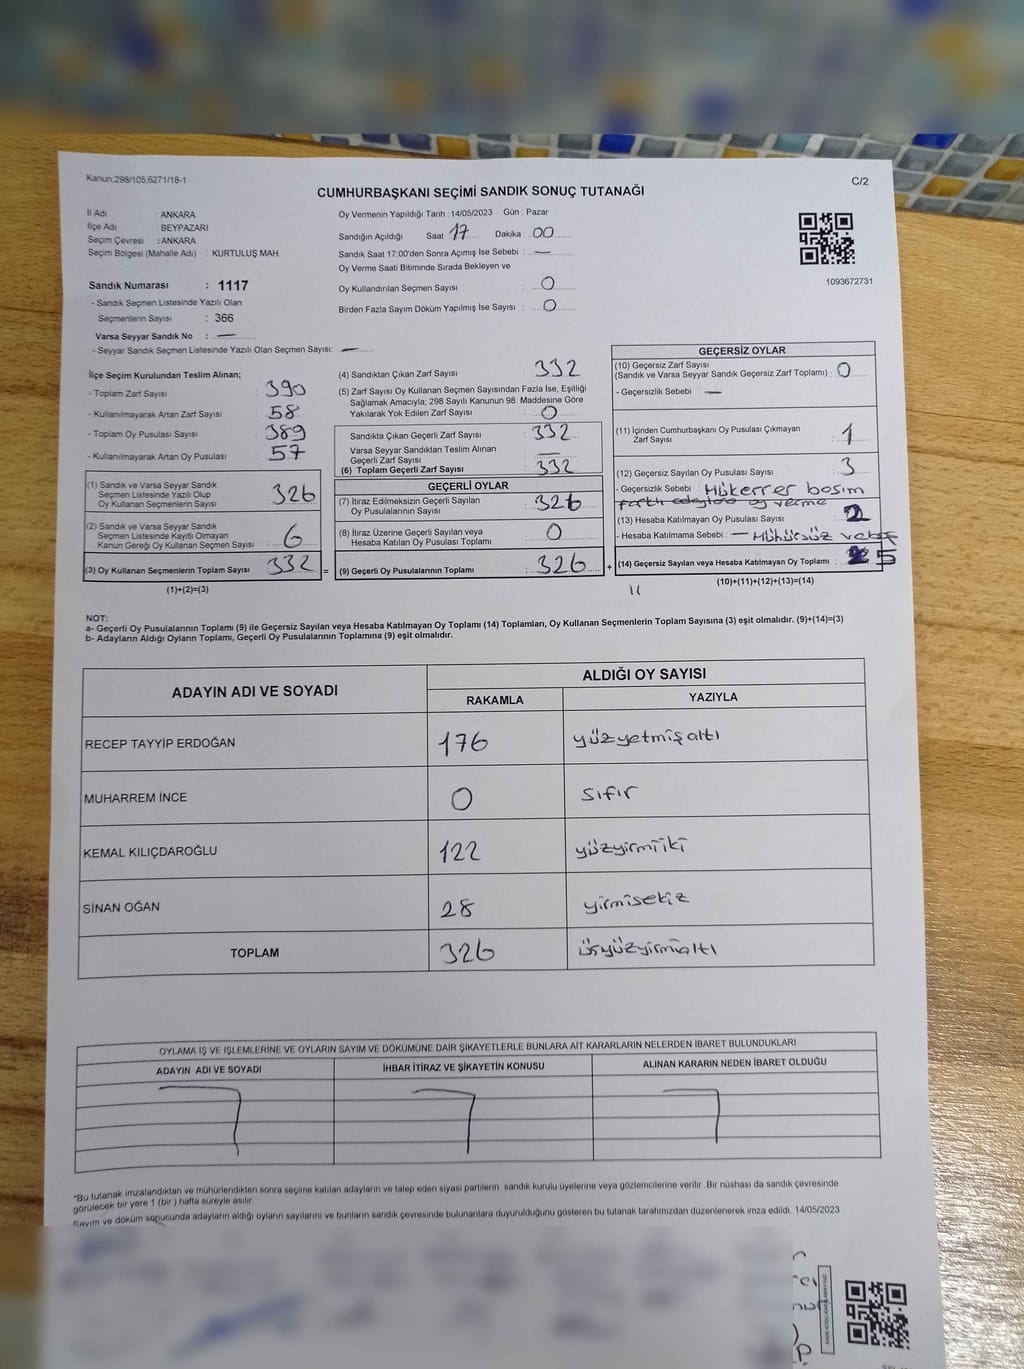 Kanun;298/105,6271/18-1
CUMHURBAŞKANI SEÇİMİ SANDIK SONUÇ TUTANAĞI
C/2
İl Adı : ANKARA
İlçe Adı : BEYPAZARI
Seçim Çevresi : ANKARA
Seçim Bölgesi (Mahalle Adı) : KURTULUŞ MAH.
Oy Vermenin Yapıldığı Tarih : 14/05/2023 Gün : Pazar
Sandığın Açıldığı Saat 17 Dakika : 00
Sandık Saat 17:00'den Sonra Açımış İse Sebebi : —
Oy Verme Saati Bitiminde Sırada Bekleyen ve
Oy Kullandırılan Seçmen Sayısı : 0
Birden Fazla Sayım Döküm Yapılmış İse Sayısı : 0
1093672731
Sandık Numarası : 1117
- Sandık Seçmen Listesinde Yazılı Olan
Seçmenlerin Sayısı : 366
Varsa Seyyar Sandık No : —
- Seyyar Sandık Seçmen Listesinde Yazılı Olan Seçmen Sayısı: —
İlçe Seçim Kurulundan Teslim Alınan;
- Toplam Zarf Sayısı : 390
- Kullanılmayarak Artan Zarf Sayısı : 58
- Toplam Oy Pusulası Sayısı : 389
- Kullanılmayarak Artan Oy Pusulası : 57
(1) Sandık ve Varsa Seyyar Sandık
Seçmen Listesinde Yazılı Olup
Oy Kullanan Seçmenlerin Sayısı : 326
(2) Sandık ve Varsa Seyyar Sandık
Seçmen Listesinde Kayıtlı Olmayan
Kanun Gereği Oy Kullanan Seçmen Sayısı : 6
(3) Oy Kullanan Seçmenlerin Toplam Sayısı : 332 =
(1)+(2)=(3)
(4) Sandıktan Çıkan Zarf Sayısı : 332
(5) Zarf Sayısı Oy Kullanan Seçmen Sayısından Fazla İse, Eşitliği
Sağlamak Amacıyla; 298 Sayılı Kanunun 98. Maddesine Göre
Yakılarak Yok Edilen Zarf Sayısı : 0
Sandıkta Çıkan Geçerli Zarf Sayısı : 332
Varsa Seyyar Sandıktan Teslim Alınan
Geçerli Zarf Sayısı : —
(6) Toplam Geçerli Zarf Sayısı : 332
GEÇERLİ OYLAR
(7) İtiraz Edilmeksizin Geçerli Sayılan
Oy Pusulalarının Sayısı : 326
(8) İtiraz Üzerine Geçerli Sayılan veya
Hesaba Katılan Oy Pusulası Toplamı : 0
(9) Geçerli Oy Pusulalarının Toplamı : 326 +
GEÇERSİZ OYLAR
(10) Geçersiz Zarf Sayısı
(Sandık ve Varsa Seyyar Sandık Geçersiz Zarf Toplamı) : 0
- Geçersizlik Sebebi : —
(11) İçinden Cumhurbaşkanı Oy Pusulası Çıkmayan
Zarf Sayısı : 1
(12) Geçersiz Sayılan Oy Pusulası Sayısı : 3
- Geçersizlik Sebebi : Mükerrer basım
farklı adaylara oy verme
(13) Hesaba Katılmayan Oy Pusulası Sayısı : 2
- Hesaba Katılmama Sebebi : — Mühürsüz
(14) Geçersiz Sayılan veya Hesaba Katılmayan Oy Toplamı : 5
(10)+(11)+(12)+(13)=(14)
NOT:
a- Geçerli Oy Pusulalarının Toplamı (9) ile Geçersiz Sayılan veya Hesaba Katılmayan Oy Toplamı (14) Toplamları, Oy Kullanan Seçmenlerin Toplam Sayısına (3) eşit olmalıdır. (9)+(14)=(3)
b- Adayların Aldığı Oyların Toplamı, Geçerli Oy Pusulalarının Toplamına (9) eşit olmalıdır.
ADAYIN ADI VE SOYADI
ALDIĞI OY SAYISI
RAKAMLA YAZIYLA
RECEP TAYYİP ERDOĞAN 176 yüzyetmişaltı
MUHARREM İNCE 0 sıfır
KEMAL KILIÇDAROĞLU 122 yüzyirmiiki
SİNAN OĞAN 28 yirmisekiz
TOPLAM 326 üçyüzyirmialtı
OYLAMA İŞ VE İŞLEMLERİNE VE OYLARIN SAYIM VE DÖKÜMÜNE DAİR ŞİKAYETLERLE BUNLARA AİT KARARLARIN NELERDEN İBARET BULUNDUKLARI
ADAYIN ADI VE SOYADI İHBAR İTİRAZ VE ŞİKAYETİN KONUSU ALINAN KARARIN NEDEN İBARET OLDUĞU
*Bu tutanak imzalandıktan ve mühürlendikten sonra seçime katılan adayların ve talep eden siyasi partilerin sandık kurulu üyelerine veya gözlemcilerine verilir. Bir nüshası da sandık çevresinde
görülecek bir yere 1 (bir) hafta süreyle asılır.
Sayım ve döküm sonucunda adayların aldığı oyların sayılarını ve bunların sandık çevresinde bulunanlara duyurulduğunu gösteren bu tutanak tarafımızdan düzenlenerek imza edildi. 14/05/2023